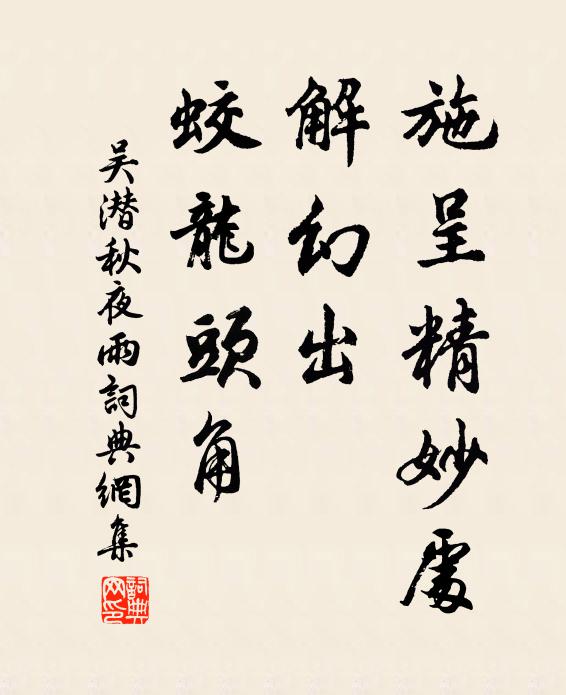 施呈精妙處
解幻出
蛟龍頭角
吴潜秋夜雨詞典網集
詞典網印